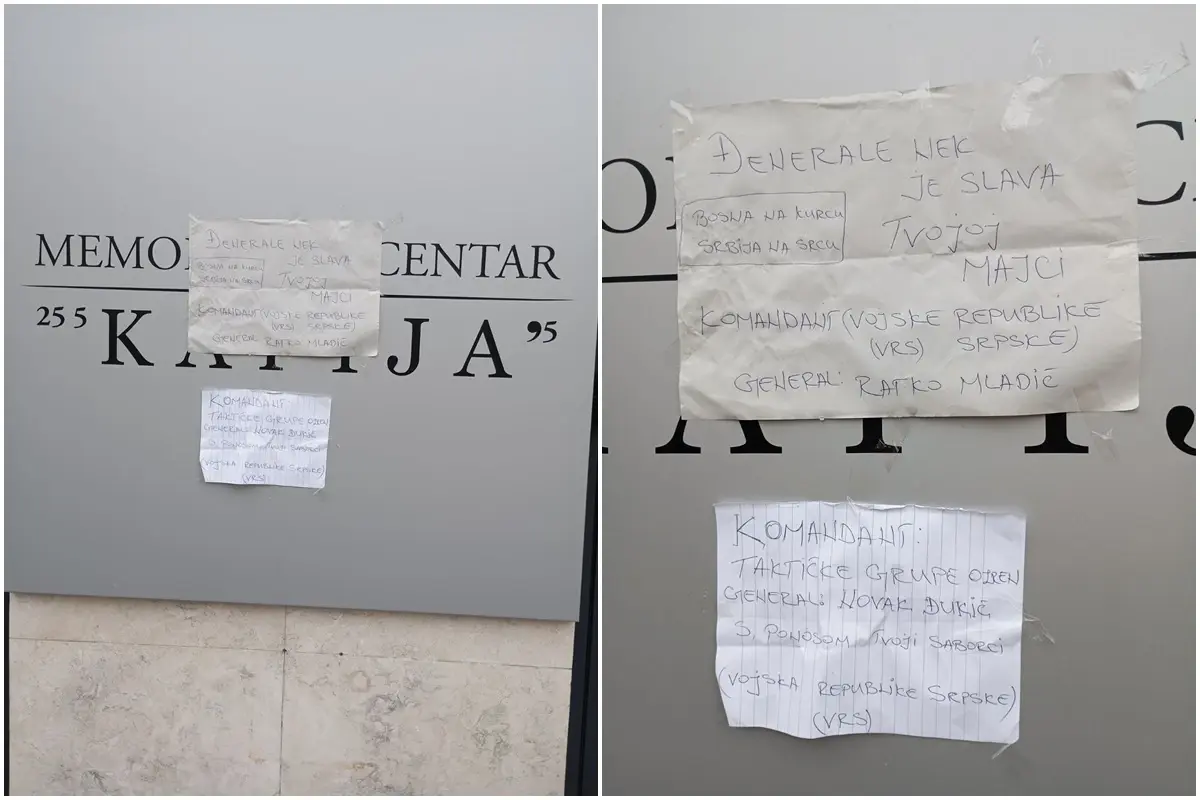 MEMO CENTAR
25 5 KAPIJA '95
ĐENERALE NEK
JE SLAVA
BOSNA NA KURCU
SRBIJA NA SRCU
TVOJOJ
MAJCI
KOMANDANT (VOJSKE REPUBLIKE
(VRS) SRPSKE)
GENERAL: RATKO MLADIĆ
KOMANDANT:
TAKTIČKE GRUPE OZREN
GENERAL: NOVAK ĐUKIĆ
S PONOSOM TVOJI SABORCI
(VOJSKA REPUBLIKE SRPSKE)
(VRS)
ĐENERALE NEK
JE SLAVA
BOSNA NA KURCU
SRBIJA NA SRCU
TVOJOJ
MAJCI
KOMANDANT (VOJSKE REPUBLIKE
(VRS) SRPSKE)
GENERAL: RATKO MLADIĆ
KOMANDANT:
TAKTIČKE GRUPE OZREN
GENERAL: NOVAK ĐUKIĆ
S PONOSOM TVOJI SABORCI
(VOJSKA REPUBLIKE SRPSKE)
(VRS)